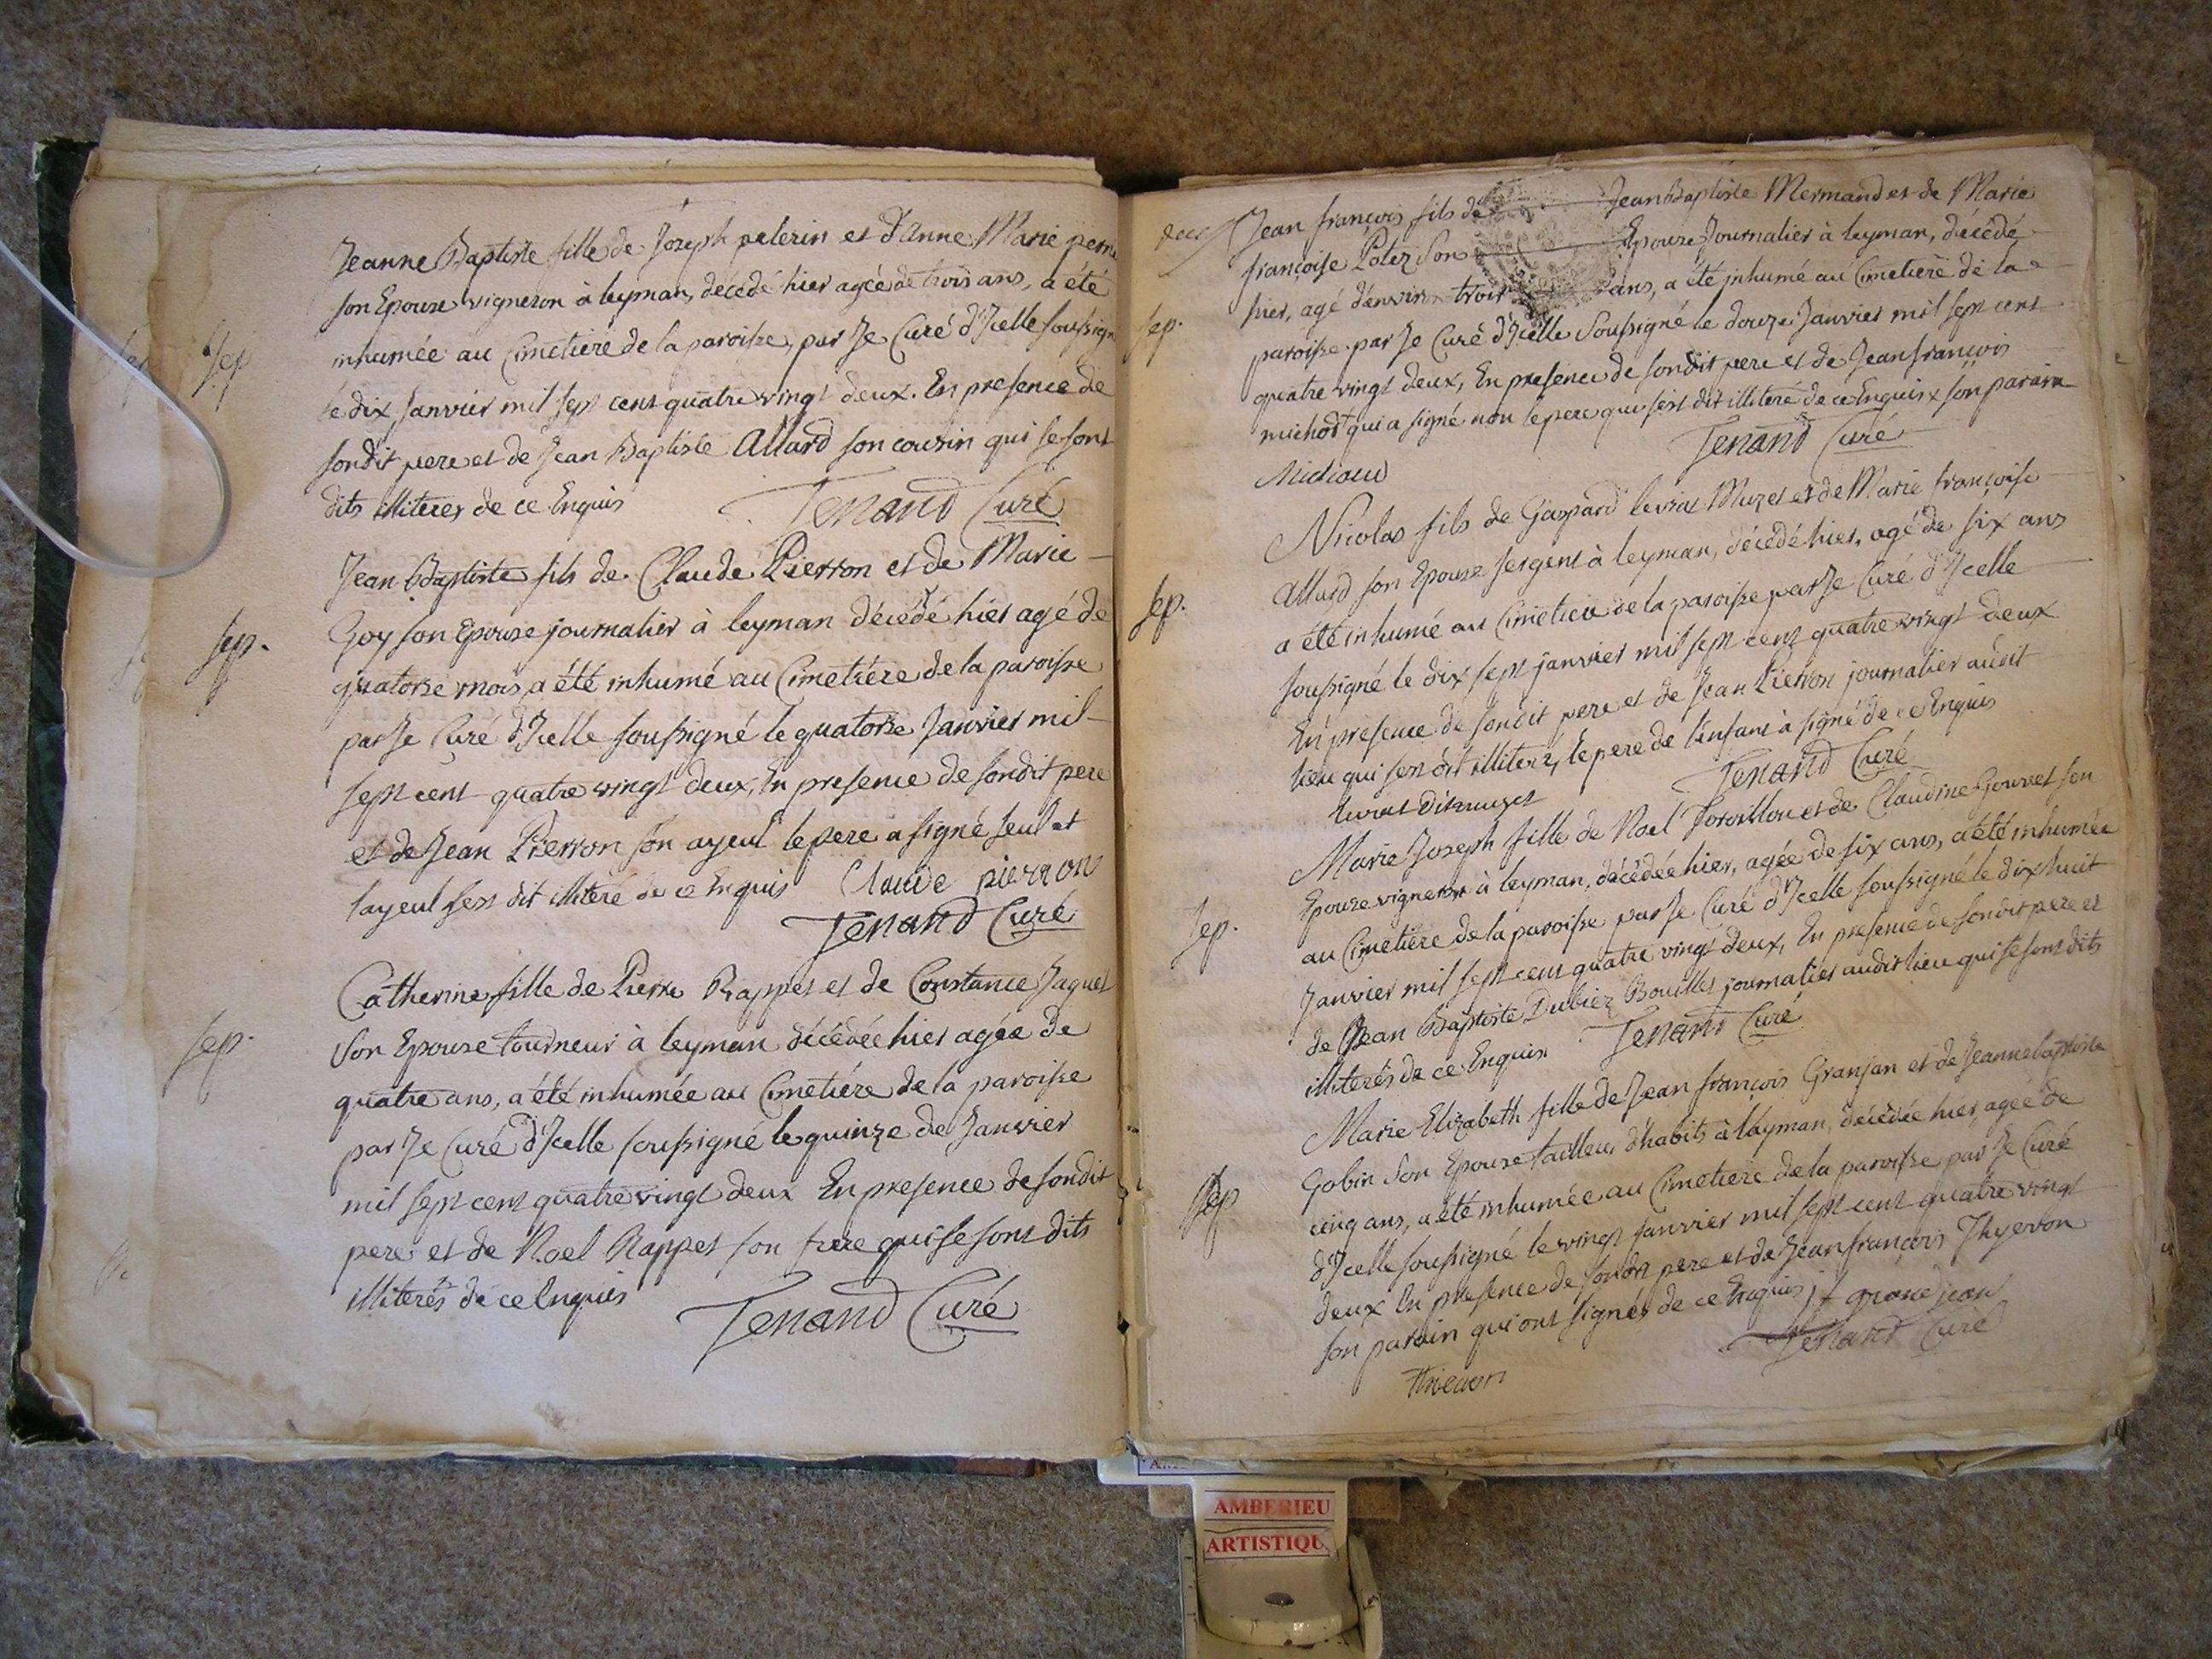 Jeanne Baptiste fille de Joseph pelerin et d'Anne Marie
son Epouse vigneron à leyman, décédé hier agée de trois ans, a été
inhumée au Cimetiere de la paroisse, par Je Curé d'Icelle soussigné
le dix Janvier mil sept cent quatre vingt deux. En presence de
sondit pere et de Jean Baptiste Allard son cousin qui se sont
dits illiteres de ce Enquis
Tenand Curé
Sep
Jean Baptiste fils de Claude Pierron et de Marie
Goy son Epouse journalier à leyman décédé hier agé de
quatorse mois a été inhumé au Cimetiére de la paroisse
par Je Curé d'Icelle soussigné le quatorse Janvier mil
sept cent quatre vingt deux, En presence de sondit pere
et de Jean Pierron son ayeul le pere a signé seul et
l'ayeul sest dit illiteré de ce Enquis Claude pierron
Tenand Curé
Sep.
Catherine fille de Pierre Rappet et de Constance Jaquet
son Epouse tourneur à leyman décédée hier agée de
quatre ans, a été inhumée au Cimetiére de la paroisse
par Je Curé d'Icelle soussigné le quinze de Janvier
mil sept cent quatre vingt deux En presence de sondit
pere et de Noel Rappet son frere qui se sont dits
illiterés de ce Enquis
Tenand Curé
Sep.
Jean françois fils de Jean Baptiste Mermand et de Marie
françoise Poter son Epouse Journalier à leyman, décédé
hier, agé d'environ trois ans, a été inhumé au Cimetiere de la
paroisse par Je Curé d'Icelle Soussigné le douze Janvier mil sept cent
quatre vingt deux, En presence de sondit pere et de Jean françois
michod qui a signé non le pere qui sest dit illiteré de ce Enquis son parain
Tenand Curé
Sep.
Nicolas fils de Gaspard levrat Muzet et de Marie françoise
Allard son Epouse sergent à leyman, décédé hier, agé de six ans
a été inhumé au Cimetiere de la paroisse par Je Curé d'Icelle
soussigné le dix sept janvier mil sept cent quatre vingt deux
En presence de sondit pere et de Jean Pierron journalier audit
lieu qui sest dit illiteré, le pere de l'enfant à signé de ce Enquis
levrat dit muzet
Tenand Curé
Sep.
Marie Joseph fille de Noel Torvillon et de Claudine Gouvet son
Epouse vigneron à leyman, décédée hier, agée de six ans, a été inhumée
au Cimetiere de la paroisse par Je Curé d'Icelle soussigné le dix huit
Janvier mil sept cent quatre vingt deux, En presence de sondit pere et
de Jean Baptiste Dubiez Bouillet journalier audit lieu qui se sont dits
illiterés de ce Enquis
Tenand Curé
Sep.
Marie Elizabeth fille de Jean françois Granjan et de Jeanne baptiste
Gobin son Epouse tailleur d'habits à leyman, décédée hier, agée de
cinq ans, a été inhumée au Cimetiere de la paroisse par Je Curé
d'Icelle soussigné le vingt Janvier mil sept cent quatre vingt
deux En presence de sondit pere et de Jean françois Thyevon
son parain qui ont signés de ce Enquis j f grand jean
Tenand Curé
Sep
AMBERIEU
ARTISTIQU